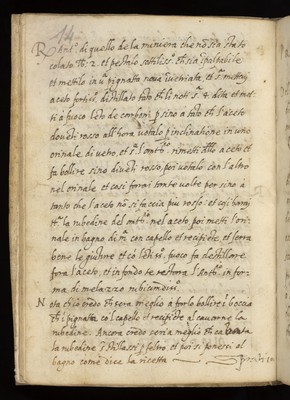 R Ant.º di quello de la miniera che nõ sia stato
colato ℔: 2. et pestalo sottiliss.º ch̃ sia ĩpalpabile
et mettilo in ũ pignatta noua ĩuetriata, et
aceto fortiss.º distillato tãto ch̃ li noti s.ª 4. dita et met
ti a fuoco lẽto de carboni sino a tãto ch̃ l'aceto
douẽti rosso all'hora uotalo p inclinatione in uno
orinale di uetro et s.ª l'ant.º rimetti altro aceto et
fa bollire sino diuẽti rosso, poi uotalo con l'altro
nel orinale et cosi farai tante uolte per sino a
tanto che l'aceto nõ si faccia piu rosso: et cosi harai
la rubedine del nel aceto, poi metti l'ori-
nale in bagno di m. con capello et recipiẽte et serra
bene le giũture et cõ lẽtiss.º fuoco fa destillare
fora l'aceto, et in fondo te restera l'Ant.º in for-
ma di melazzo rubicundiss.º
Nota ch̃ io credo ch̃ sera meglio a farlo bollire ĩ boccia
ch̃ ĩ pignatta co'l capello et recipiẽte al cauarne la
rubedine. Ancora credo seria meglio ch̃ cauata
la rubedine si stillassi p feltro, et poi si ponessi al
bagno come dice la ricetta